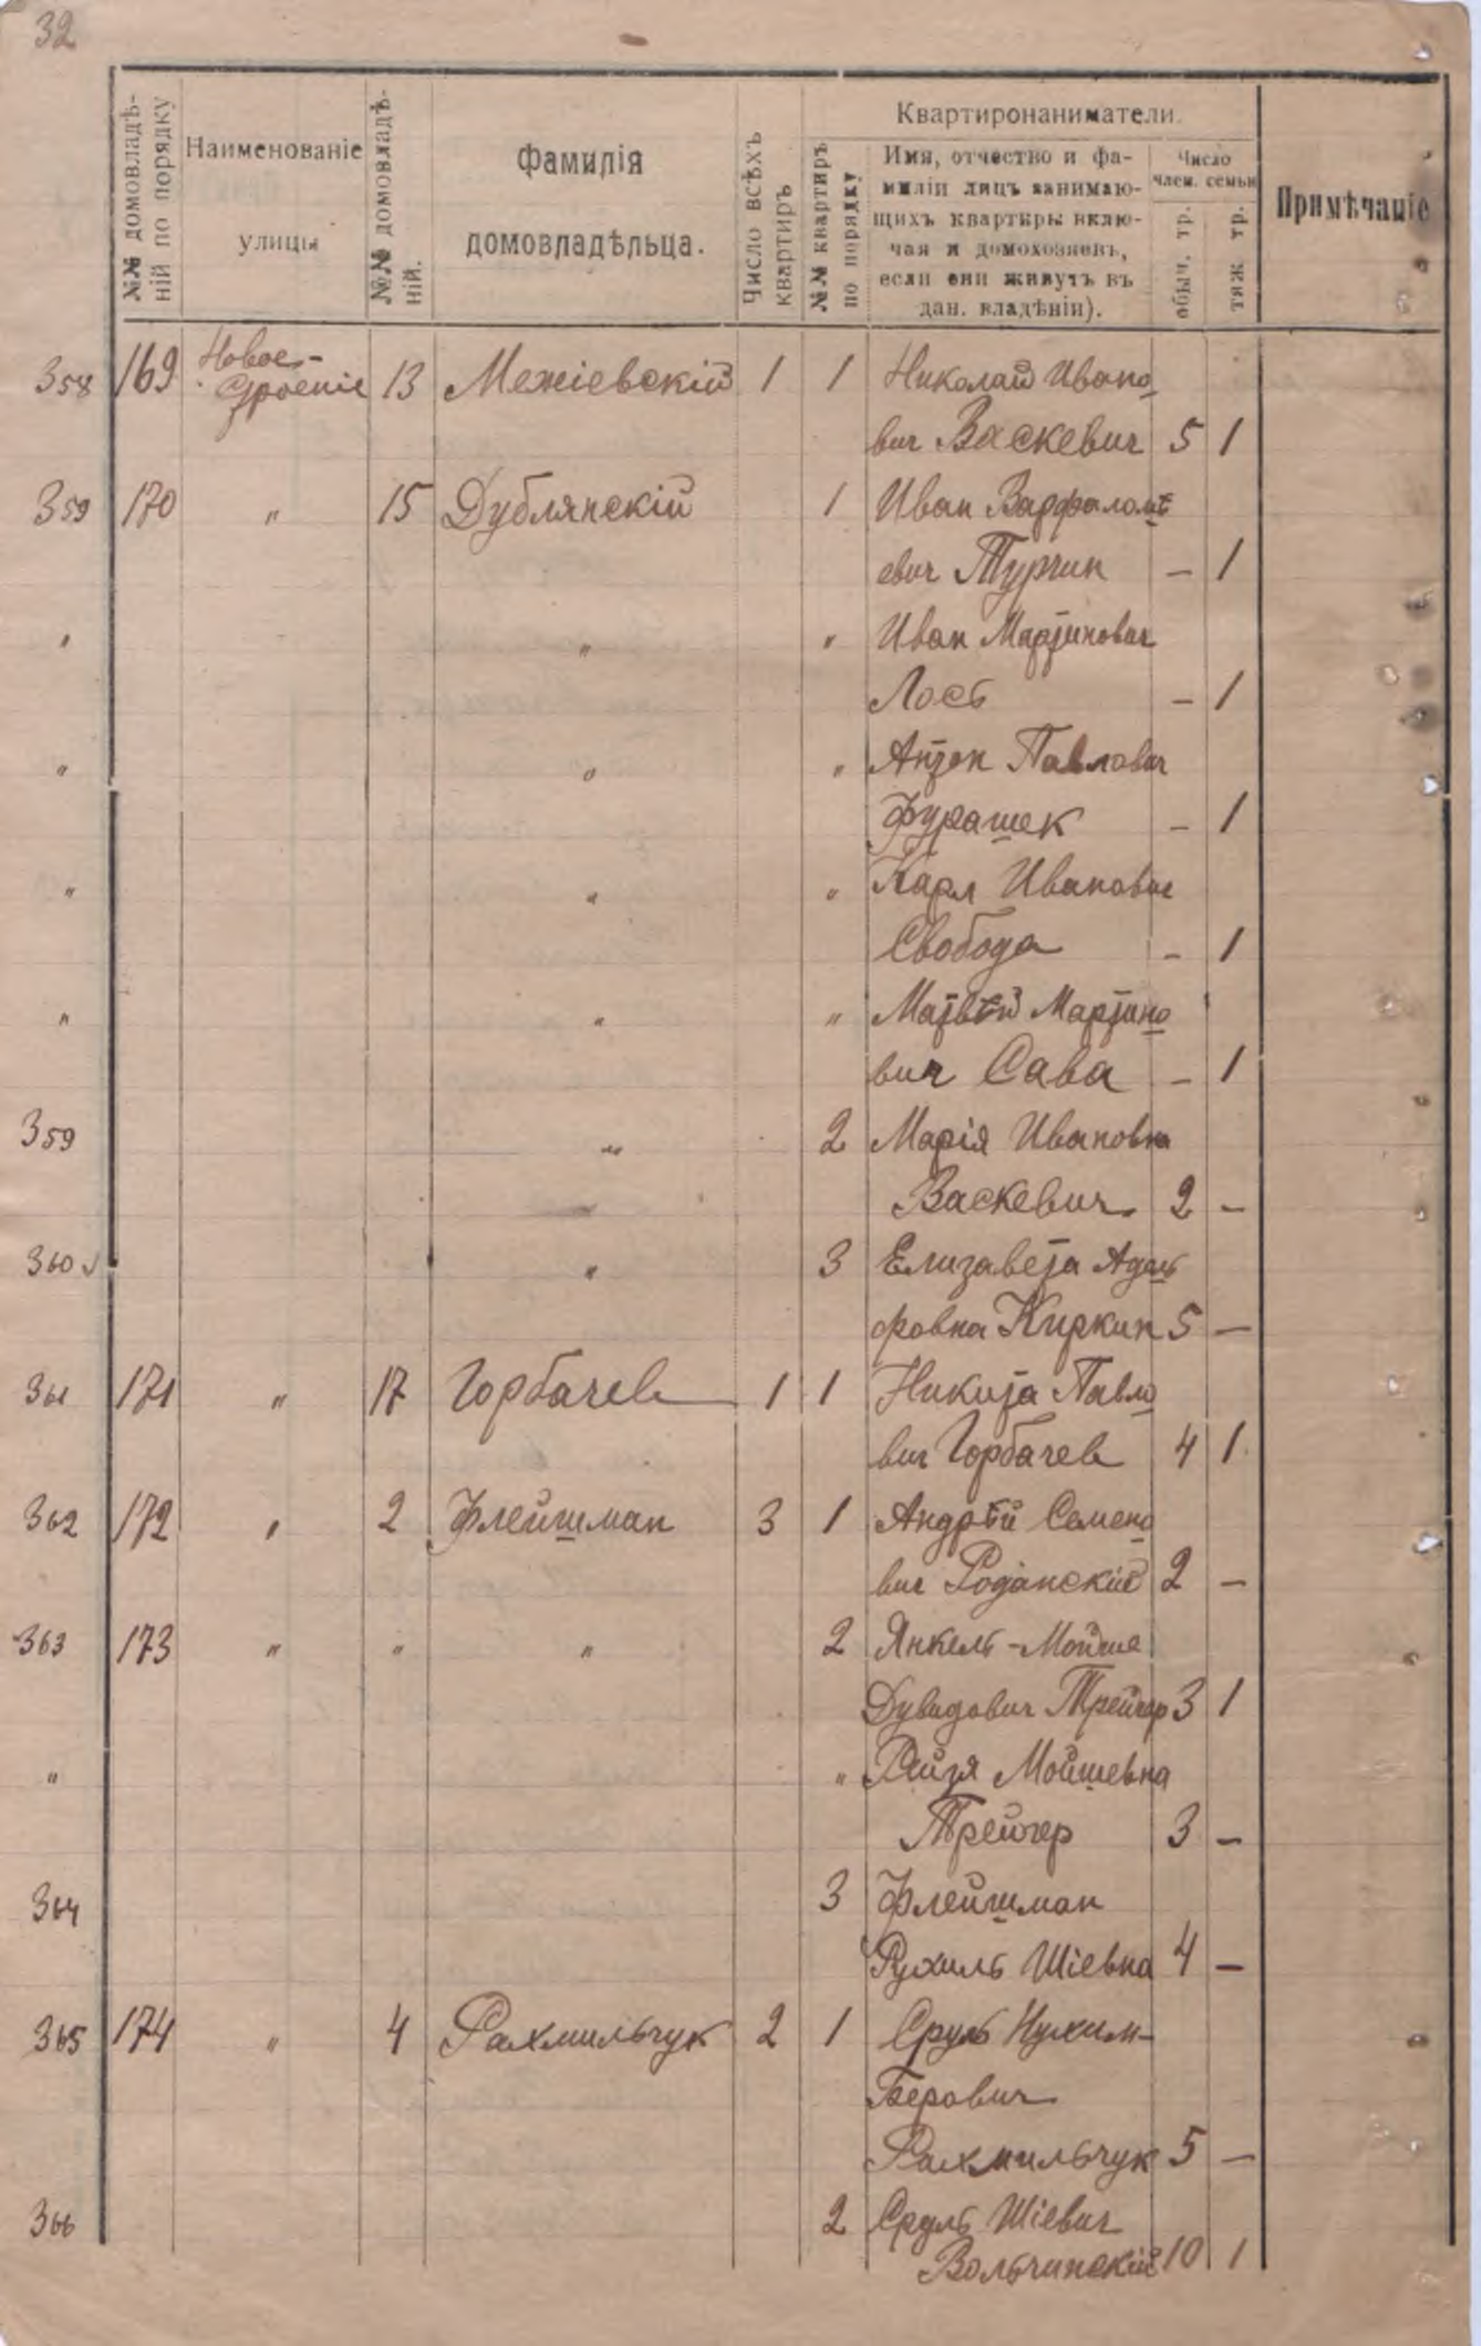 32
№№ домовладѣ-
ній по порядку
Наименованіе
улицы
№№ домовладѣ-
ній.
Фамилія
домовладѣльца.
Число всѣхъ
квартиръ
№№ квартиръ
по порядку
Квартиронаниматели.
Имя, отчество и фа-
миліи лицъ занимаю-
щихъ квартиры вклю-
чая и домохозяевъ,
если они живутъ въ
дан. владѣніи).
Число
член. семьи
обыч. тр.
тяж. тр.
Примѣчаніе
358 169 Новое- 13 Межіевскій 1 1 Николай Ивано
Строеніе
вич Васкевич 5 1
359 170 " 15 Дублянскій 1 Иван Варфаломѣ
евич Турчин – 1
" " " Иван Мартинович
Лось – 1
" " " Антон Павлович
Фурашек – 1
" " " Карл Иванович
Свобода – 1
" " " Матвѣй Мартино
вич Сава – 1
359 " 2 Марія Ивановна
" Васкевич 2 –
360 " 3 Елизавета Адоль
фовна Киркин 5 –
361 171 " 17 Горбачев 1 1 Никита Павло
вич Горбачев 4 1
362 172 " 2 Флейшман 3 1 Андрѣй Семено
вич Роданскій 2 –
363 173 " " " 2 Янкель-Мойше
Дувидович Трейгер 3 1
" " Рейзя Мойшевна
Трейгер 3 –
364 3 Флейшман
Рухиль Шіевна 4 –
365 174 " 4 Рахмильчук 2 1 Сруль Нухим-
Берович
Рахмильчук 5 –
366 2 Сруль Шіевич
Вольчинскій 10 1